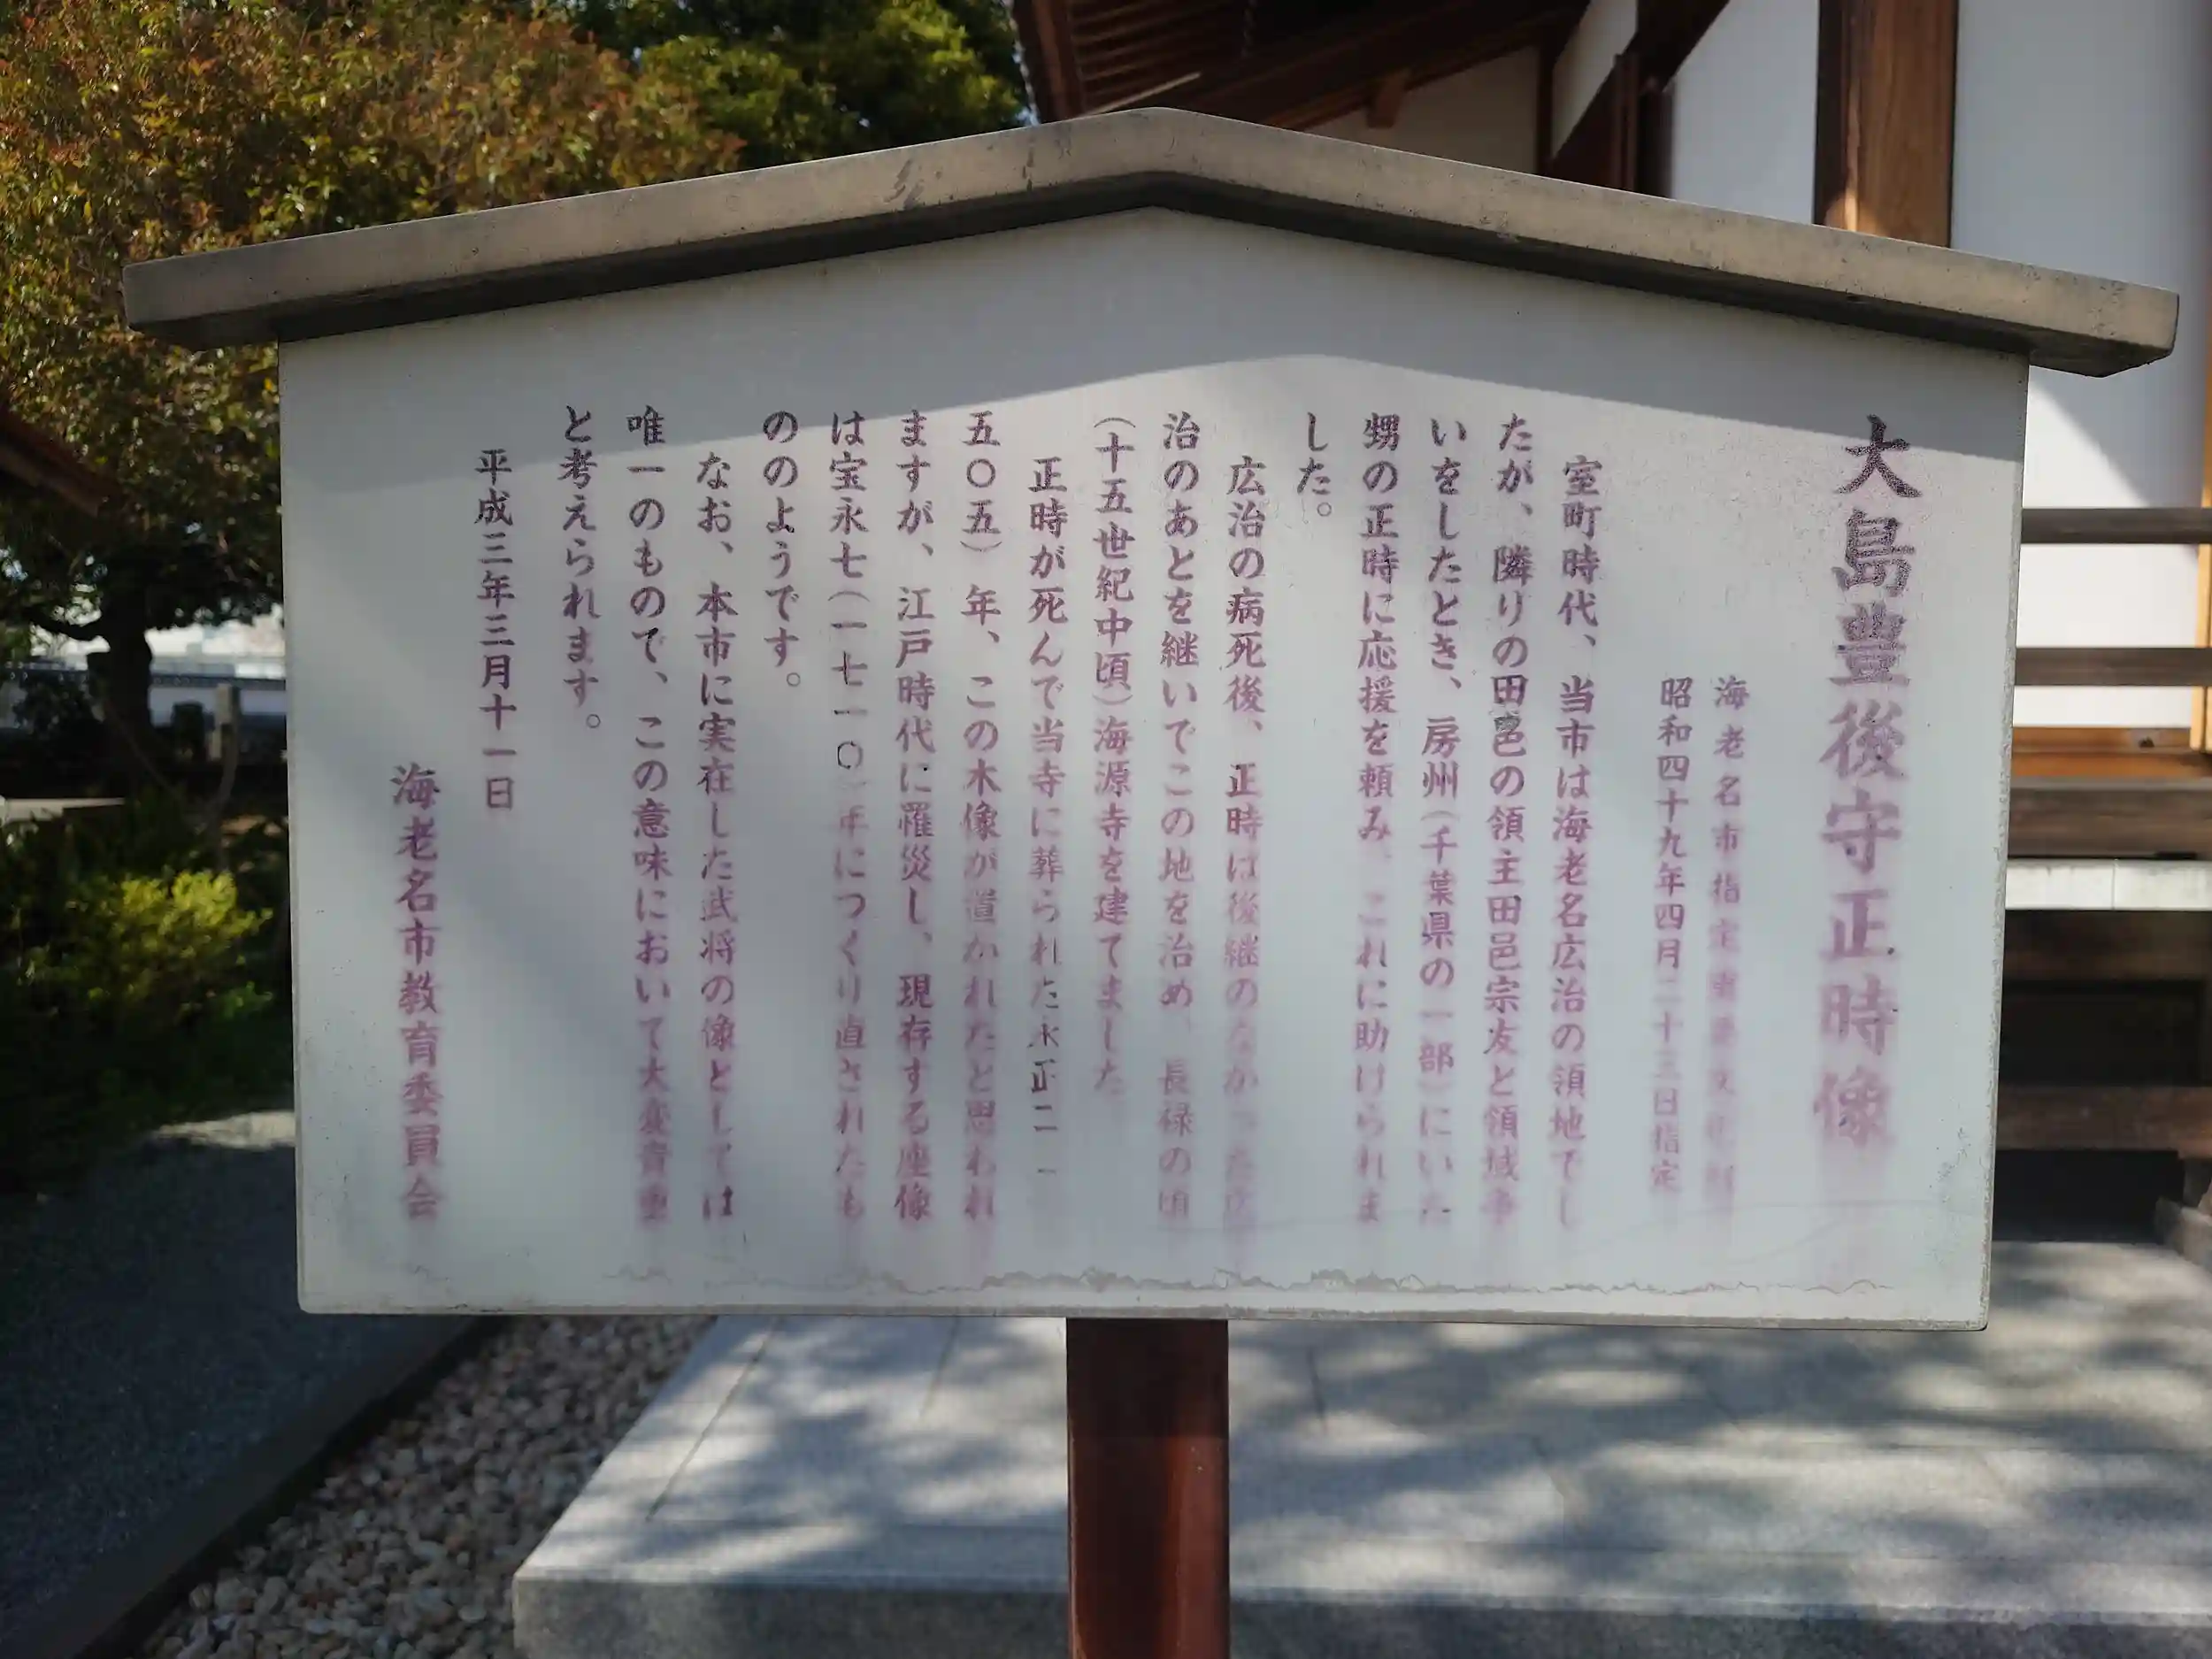 大島豊後守正時像
海老名市指定重要文化財
昭和四十九年四月二十三日指定
室町時代、当市は海老名広治の領地でし
たが、隣りの田邑の領主田邑宗友と領域争
いをしたとき、房州(千葉県の一部)にいた
甥の正時に応援を頼み、これに助けられま
した。
広治の病死後、正時は後継のなかった広
治のあとを継いでこの地を治め、長禄の頃
(十五世紀中頃)海源寺を建てました
正時が死んで当寺に葬られた永正二(一
五〇五)年、この木像が造かれたと思われ
ますが、江戸時代に罹災し、現存する座像
は宝永七(一七一〇)年につくり直されたも
ののようです。
なお、本市に実在した武将の像としては
唯一のもので、この意味において大変貴重
と考えられます。
平成三年三月十一日
海老名市教育委員会